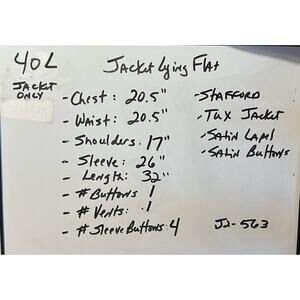 40L
Jacket Lying Flat
JACKET
ONLY
- Chest: 20.5"
- Waist: 20.5"
- Shoulders: 17"
- Sleeve: 26"
- Length: 32"
- # Buttons 1
- # Vents: 1
- # Sleeve Buttons: 4
- STAFFORD
- Tux Jacket
- Satin Lapel
- Satin Buttons
J2-563